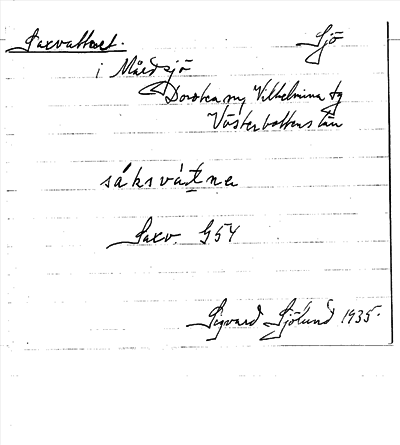 Saxvattnet. Sjö
i Mårdsjö
Dorotea sn, Vilhelmina tg
Västerbottens län
sáksvátne
Saxv. G54
Sigvard Sjölund 1935.